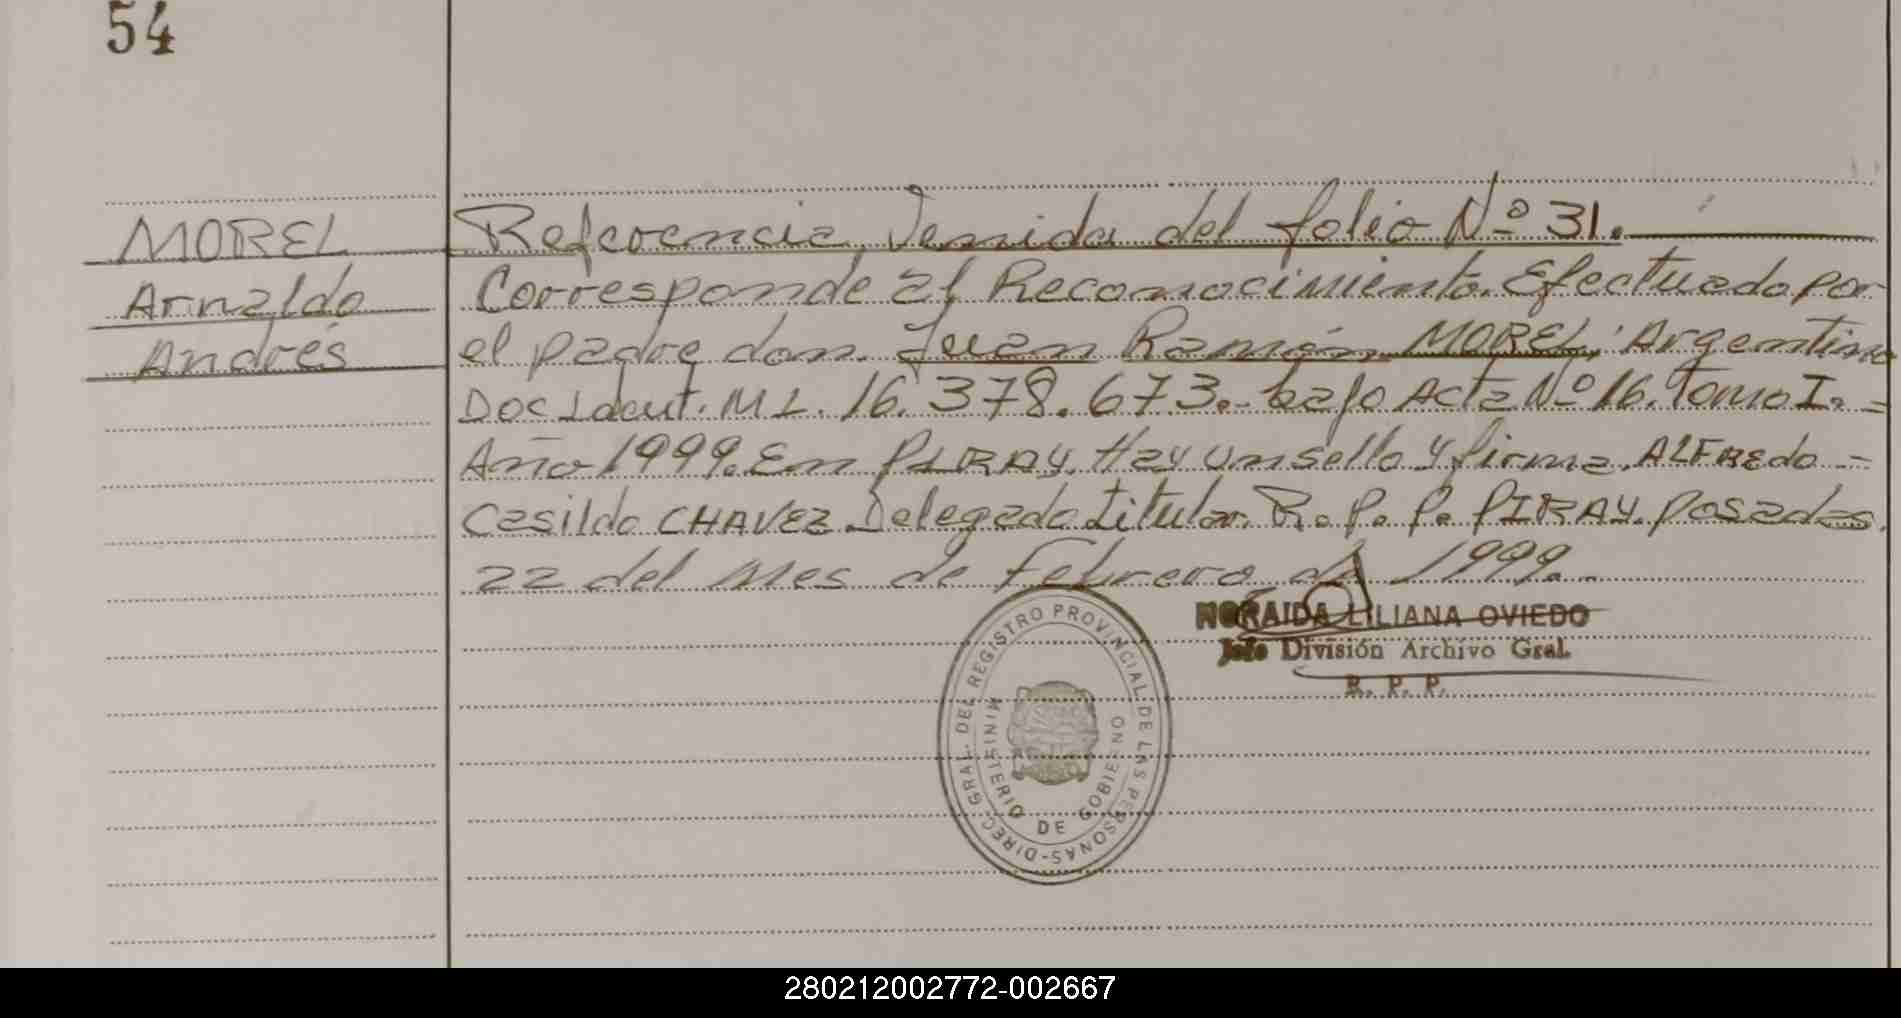 54
MOREL
Arnaldo
Andrés
Referencia Venida del folio Nº 31.
Corresponde al Reconocimiento. Efectuado por
el padre don. Juan Ramón MOREL, Argentino
Doc Ident. M I. 16.378.673.- bajo Acta Nº 16. Tomo I. =
Año 1999. En PIRAY. Hay un sello y firma. ALFREDO -
Casildo CHAVEZ Delegado titular. R. P. P. PIRAY. Posadas.
22 del Mes de Febrero de 1999.
NORAIDA LILIANA OVIEDO
Jefe División Archivo Gral.
R. P. P.
DIREC. GRAL. DEL REGISTRO PROVINCIAL DE LAS PERSONAS-
MINISTERIO DE GOBIERNO
280212002772-002667